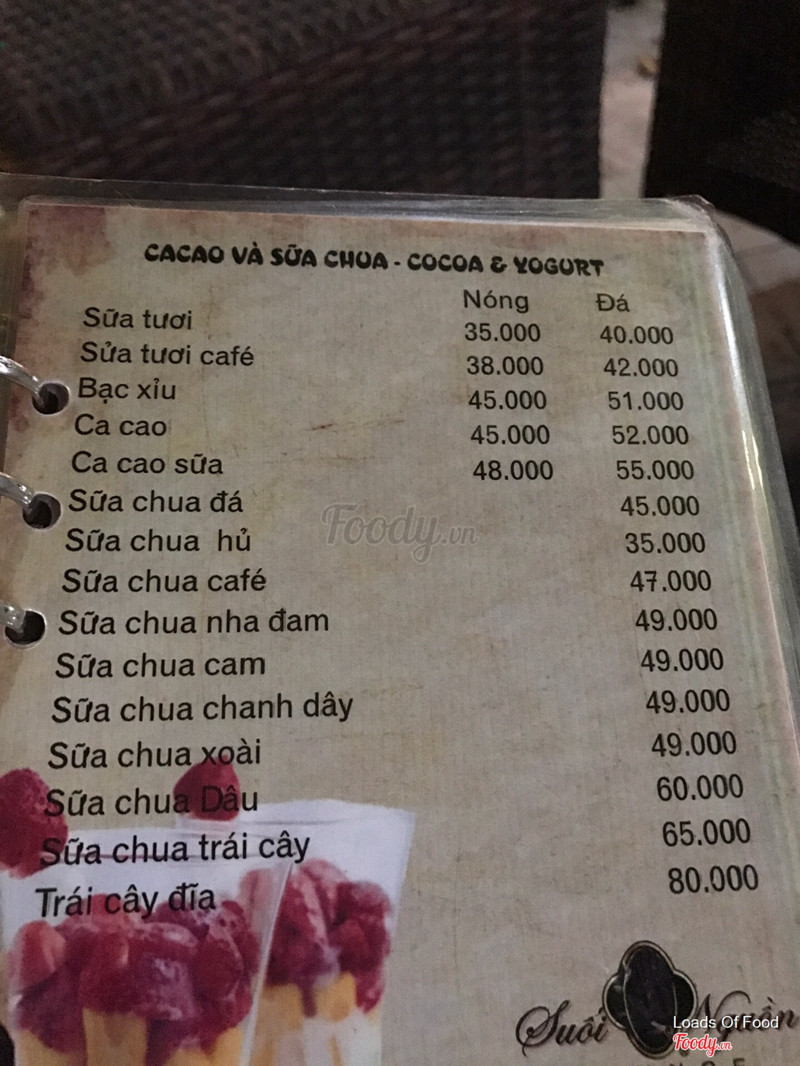 CACAO VÀ SỮA CHUA - COCOA & YOGURT
Nóng Đá
Sữa tươi 35.000 40.000
Sửa tươi café 38.000 42.000
Bạc xỉu 45.000 51.000
Ca cao 45.000 52.000
Ca cao sữa 48.000 55.000
Sữa chua đá 45.000
Sữa chua hủ 35.000
Sữa chua café 47.000
Sữa chua nha đam 49.000
Sữa chua cam 49.000
Sữa chua chanh dây 49.000
Sữa chua xoài 49.000
Sữa chua Dâu 60.000
Sữa chua trái cây 65.000
Trái cây đĩa 80.000
Foody.vn
Suối Ngần
Loads Of Food
Foody.vn